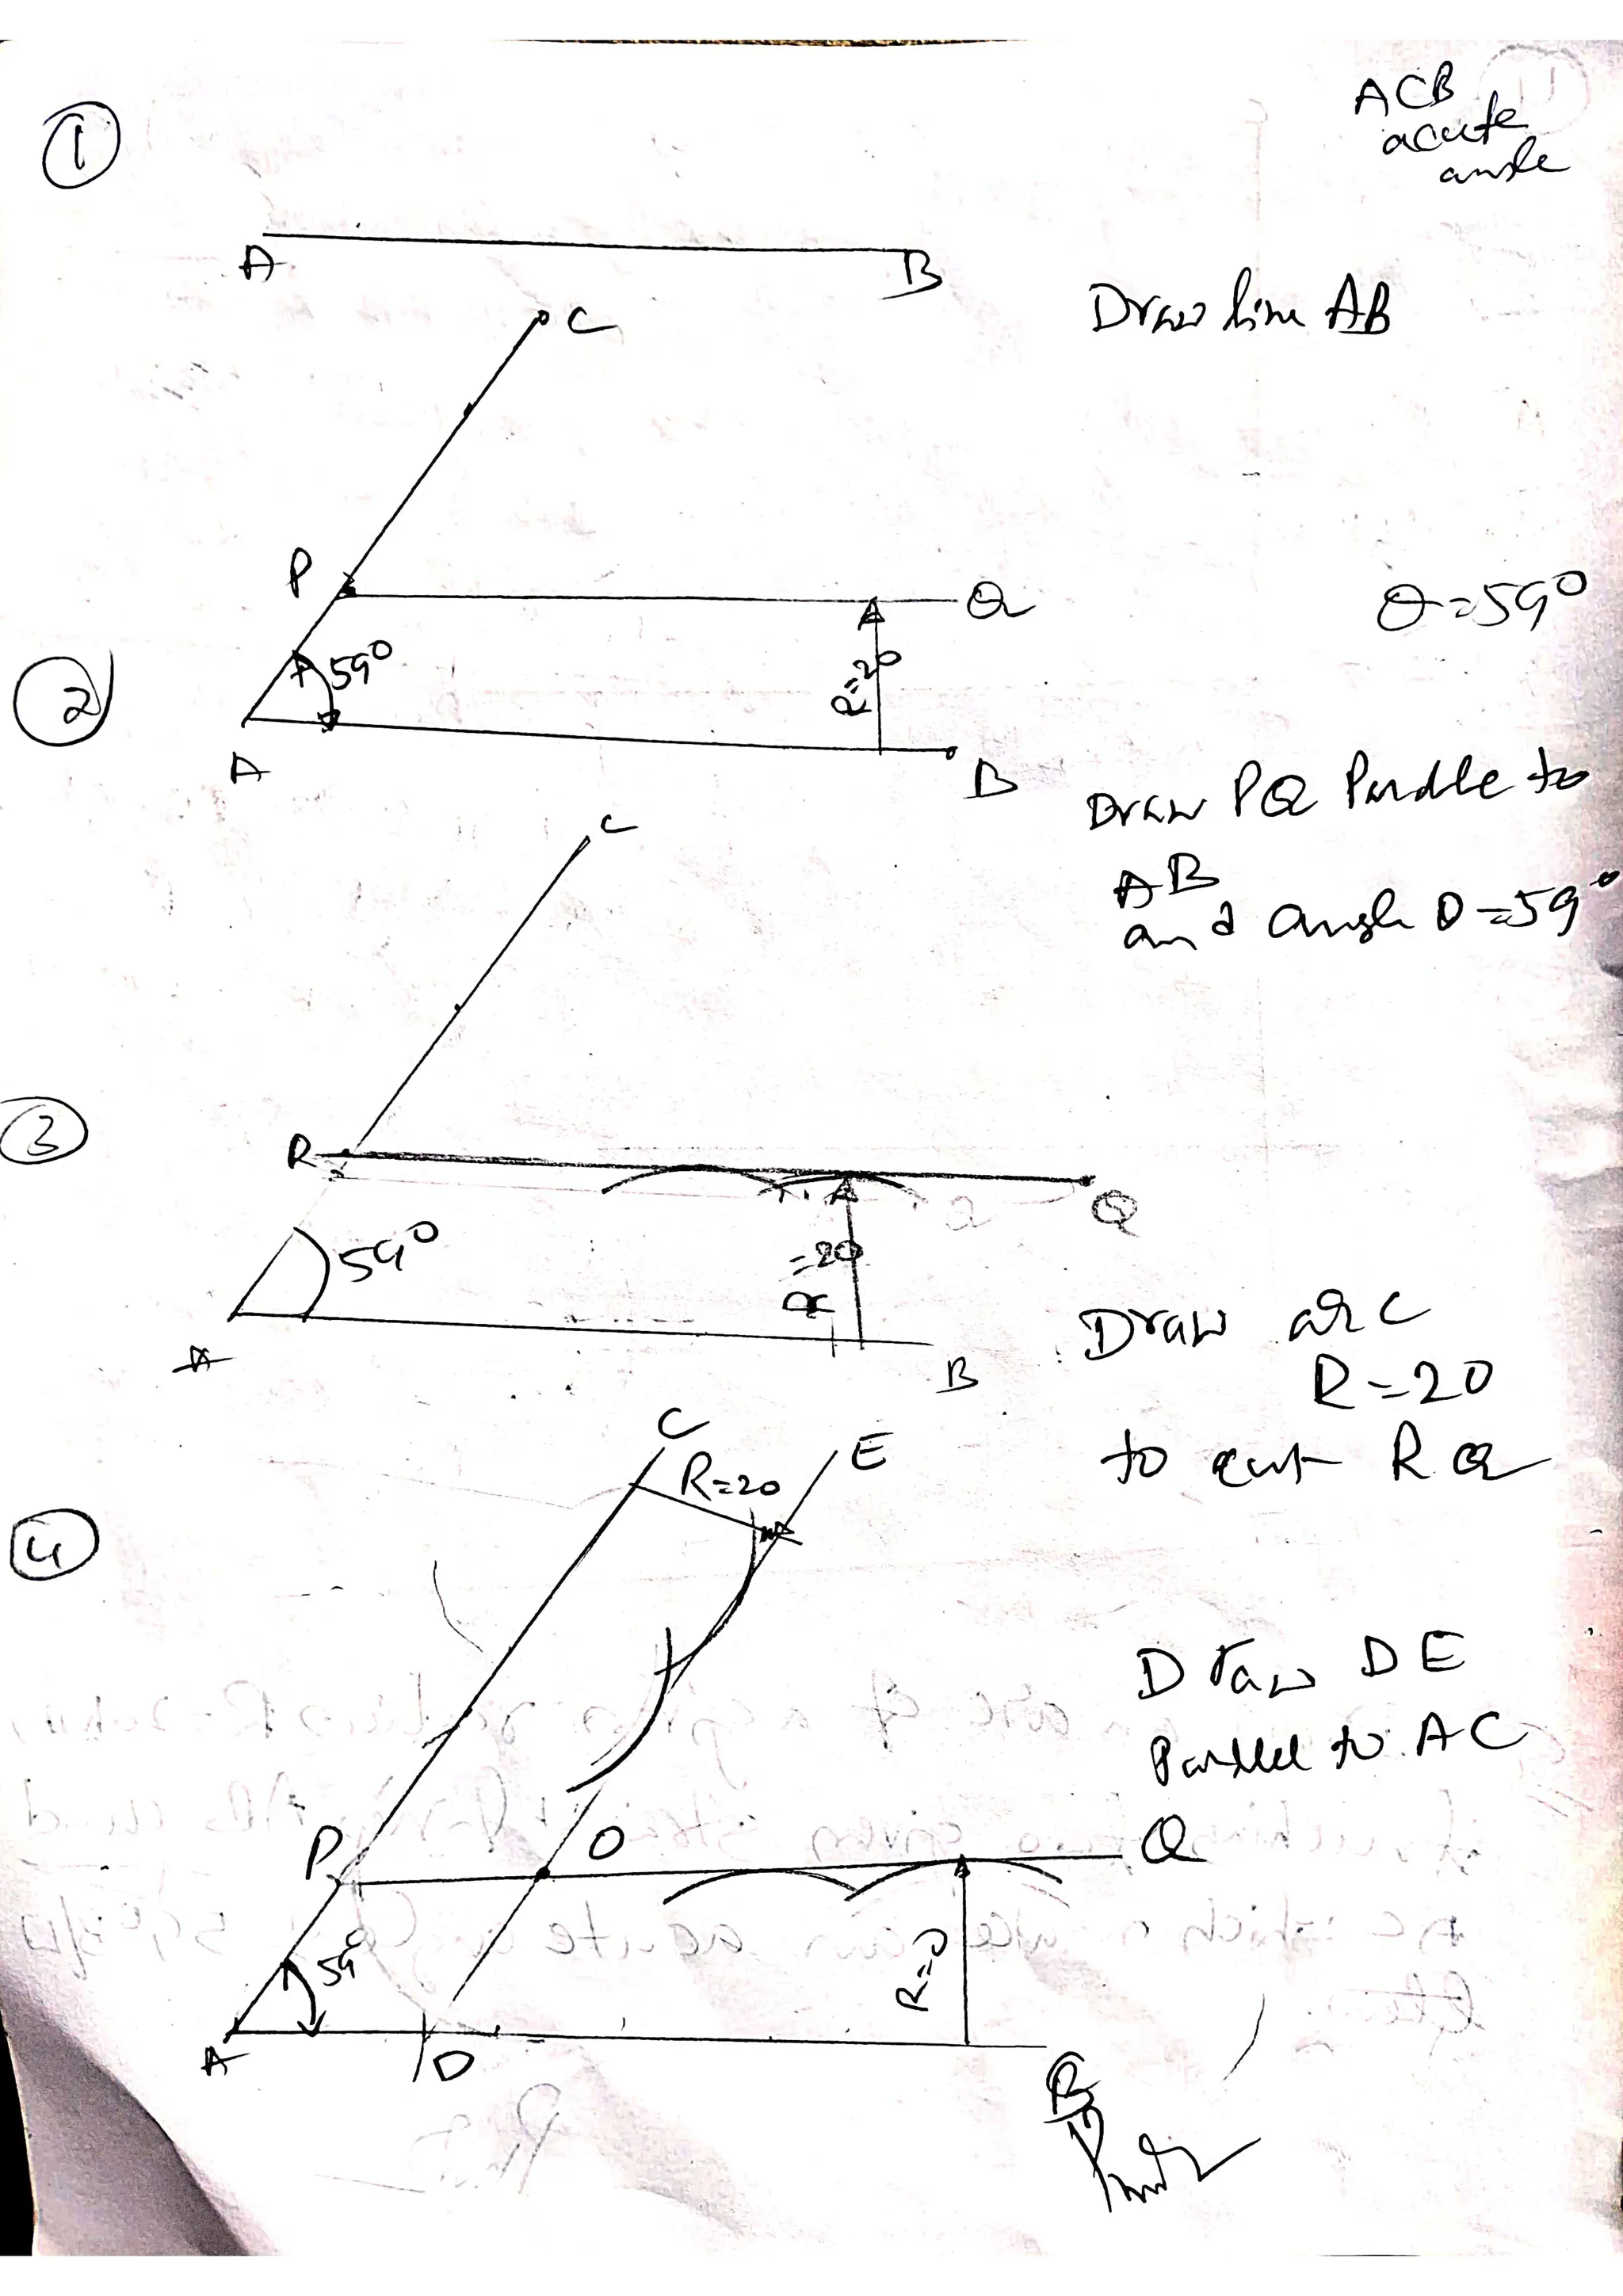 ACB
acute
angle
1
A B
Draw line AB
C
P Q
θ=59°
59°
R=20
2
A B
Draw PQ Paralle to
AB
and angle θ=59°
C
3
R Q
59°
=20
R
A B
Draw arc
R=20
to cut RQ
C E
R=20
4
Draw DE
Parallel to AC
P O Q
59°
R=0
A D B